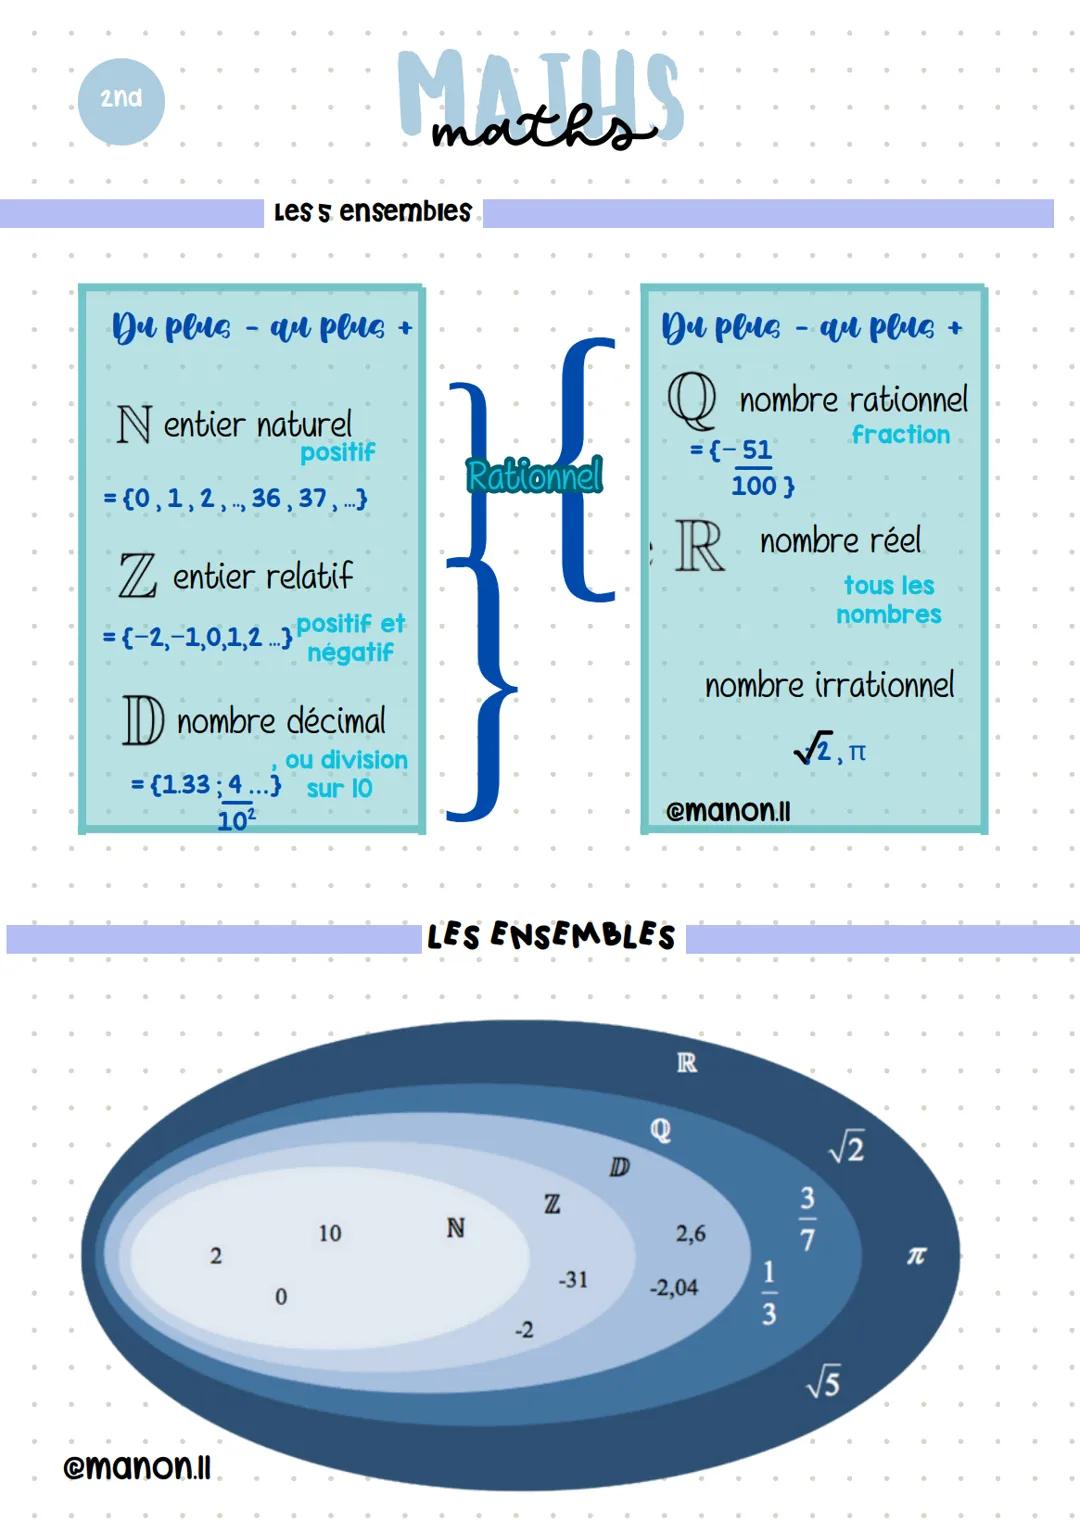 2nd
MATHS
maths
Les 5 ensembles
Du plus - au plus +
ℕ entier naturel
positif
= {0 , 1 , 2 , .., 36 , 37 , ...}
ℤ entier relatif
= {-2,-1,0,1,2 ...} positif et
négatif
𝔻 nombre décimal
, ou division
= {1.33 ; 4 ...} sur 10
10²
Rationnel
Du plus - au plus +
ℚ nombre rationnel
fraction
= {- 51
100 }
ℝ nombre réel
tous les
nombres
nombre irrationnel
√2 , π
@manon.ll
LES ENSEMBLES
ℝ
ℚ
√2
𝔻
ℤ
3
7
10
ℕ
2,6
2
π
-31
-2,04
1
3
0
-2
√5
@manon.ll